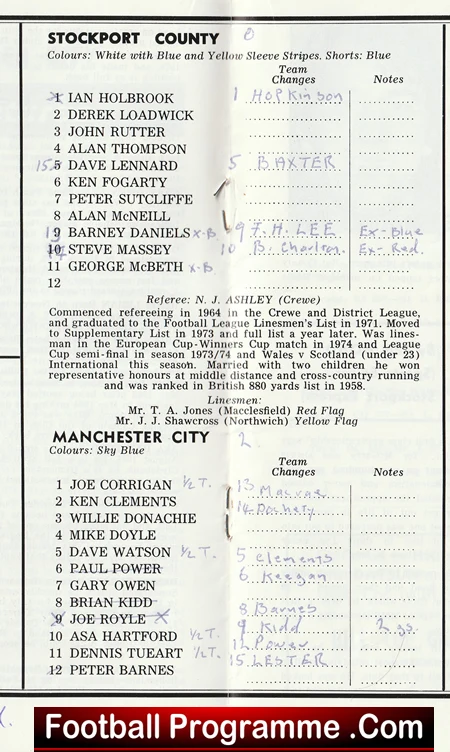 STOCKPORT COUNTY 0
Colours: White with Blue and Yellow Sleeve Stripes. Shorts: Blue
Team Changes Notes
1 IAN HOLBROOK 1 HOPKinson
2 DEREK LOADWICK
3 JOHN RUTTER
4 ALAN THOMPSON
15 5 DAVE LENNARD 5 BAXTER
6 KEN FOGARTY
7 PETER SUTCLIFFE
8 ALAN McNEILL
9 BARNEY DANIELS X-B 9 F.H. LEE Ex-Blue
10 STEVE MASSEY 10 B. Charlton. Ex-Red.
11 GEORGE McBETH X-B
12
Referee: N. J. ASHLEY (Crewe)
Commenced refereeing in 1964 in the Crewe and District League,
and graduated to the Football League Linesmen's List in 1971. Moved
to Supplementary List in 1973 and full list a year later. Was lines-
man in the European Cup-Winners Cup match in 1974 and League
Cup semi-final in season 1973/74 and Wales v Scotland (under 23)
International this season. Married with two children he won
representative honours at middle distance and cross-country running
and was ranked in British 880 yards list in 1958.
Linesmen:
Mr. T. A. Jones (Macclesfield) Red Flag
Mr. J. J. Shawcross (Northwich) Yellow Flag
MANCHESTER CITY 2.
Colours: Sky Blue
Team Changes Notes
1 JOE CORRIGAN ½ T. 13 Macrae
2 KEN CLEMENTS 14 Docherty
3 WILLIE DONACHIE
4 MIKE DOYLE
5 DAVE WATSON ½ T. 5 Clements
6 PAUL POWER 6 Keegan
7 GARY OWEN
8 BRIAN KIDD 8 Barnes
9 JOE ROYLE X 9 Kidd 2 gs.
10 ASA HARTFORD ½ T. 12 Power
11 DENNIS TUEART ½ T. 15 LESTER
12 PETER BARNES
Football Programme .Com